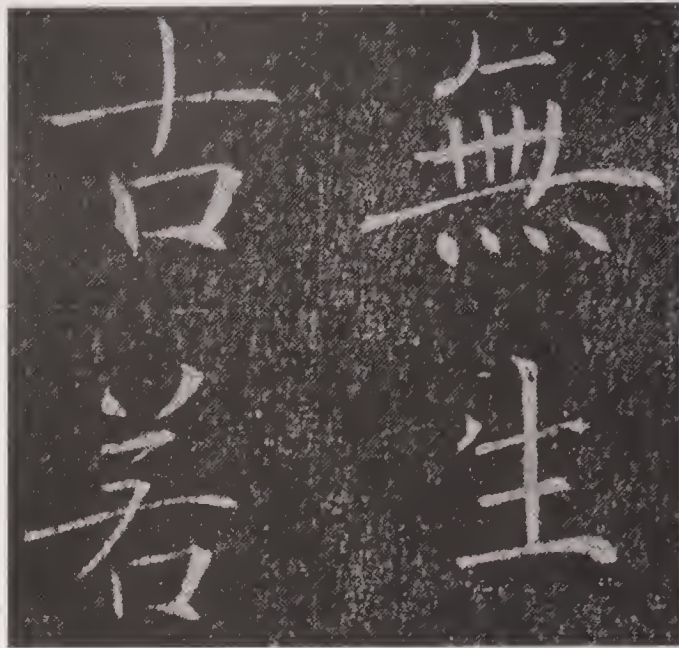 無生
古若